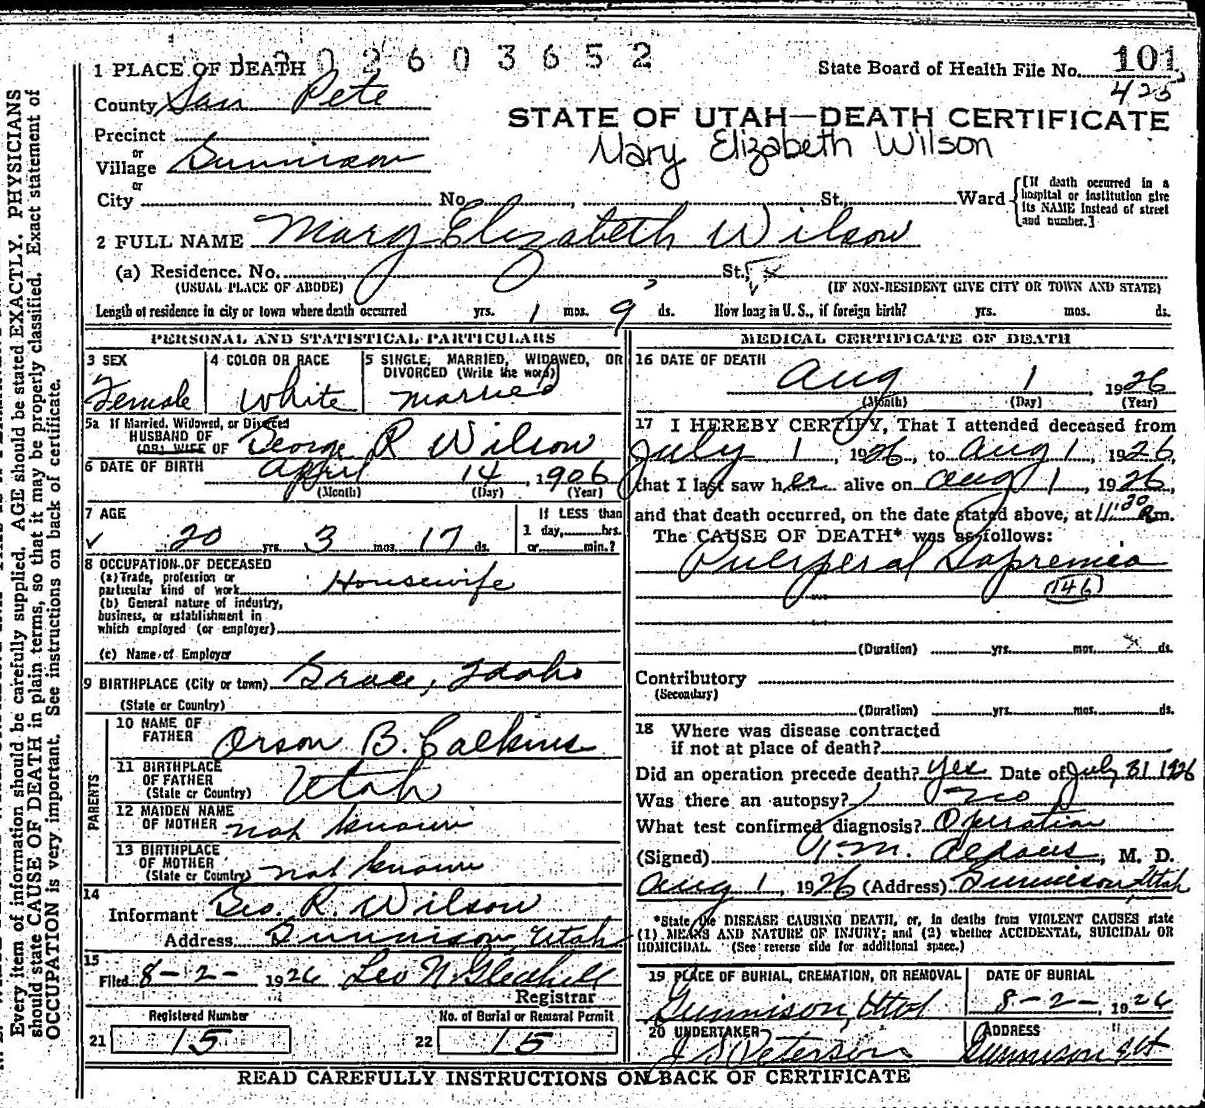 202603652
1 PLACE OF DEATH
State Board of Health File No. 101
425
County San Pete
STATE OF UTAH—DEATH CERTIFICATE
Mary Elizabeth Wilson
Precinct
or
Village Gunnison
or
City No. St., Ward
[If death occurred in a
hospital or institution give
its NAME instead of street
and number.]
2 FULL NAME Mary Elizabeth Wilson
(a) Residence. No. St.,
(USUAL PLACE OF ABODE) (IF NON-RESIDENT GIVE CITY OR TOWN AND STATE)
Length of residence in city or town where death occurred yrs. 1 mos. 9 ds. How long in U. S., if foreign birth? yrs. mos. ds.
PERSONAL AND STATISTICAL PARTICULARS
3 SEX
Female
4 COLOR OR RACE
White
5 SINGLE, MARRIED, WIDOWED, OR
DIVORCED (Write the word)
married
5a If Married, Widowed, or Divorced
HUSBAND OF
(OR) WIFE OF George R Wilson
6 DATE OF BIRTH April 14, 1906
(Month) (Day) (Year)
7 AGE
20 yrs. 3 mos. 17 ds.
If LESS than
1 day, hrs.
or min.?
8 OCCUPATION OF DECEASED
(a) Trade, profession or
particular kind of work Housewife
(b) General nature of industry,
business, or establishment in
which employed (or employer)
(c) Name of Employer
9 BIRTHPLACE (City or town) Grace, Idaho
(State or Country)
PARENTS
10 NAME OF
FATHER Orson B. Calkins
11 BIRTHPLACE
OF FATHER
(State or Country) Utah
12 MAIDEN NAME
OF MOTHER not known
13 BIRTHPLACE
OF MOTHER
(State or Country) not known
14
Informant Geo. R. Wilson
Address Gunnison, Utah
15
Filed 8-2- 1926 Leo N. Gledhill
Registrar
Registered Number
21 15
No. of Burial or Removal Permit
22 15
MEDICAL CERTIFICATE OF DEATH
16 DATE OF DEATH
Aug 1 1926
(Month) (Day) (Year)
17 I HEREBY CERTIFY, That I attended deceased from
July 1, 1926, to Aug 1, 1926,
that I last saw her alive on Aug 1, 1926,
and that death occurred, on the date stated above, at 11:30 m.
The CAUSE OF DEATH* was as follows:
Puerperal Sapremia
146
(Duration) yrs. mos. ds.
Contributory
(Secondary)
(Duration) yrs. mos. ds.
18 Where was disease contracted
if not at place of death?
Did an operation precede death? Yes Date of July 31 1926
Was there an autopsy? no
What test confirmed diagnosis? Operation
(Signed) M. D.
Aug 1, 1926 (Address) Gunnison, Utah
*State the DISEASE CAUSING DEATH, or, in deaths from VIOLENT CAUSES state
(1) MEANS AND NATURE OF INJURY; and (2) whether ACCIDENTAL, SUICIDAL OR
HOMICIDAL. (See reverse side for additional space.)
19 PLACE OF BURIAL, CREMATION, OR REMOVAL
Gunnison, Utah
DATE OF BURIAL
8-2-, 1926
20 UNDERTAKER
J S Peterson
ADDRESS
Gunnison Ut
READ CAREFULLY INSTRUCTIONS ON BACK OF CERTIFICATE
Every item of information should be carefully supplied. AGE should be stated EXACTLY. PHYSICIANS
should state CAUSE OF DEATH in plain terms, so that it may be properly classified. Exact statement of
OCCUPATION is very important. See instructions on back of certificate.